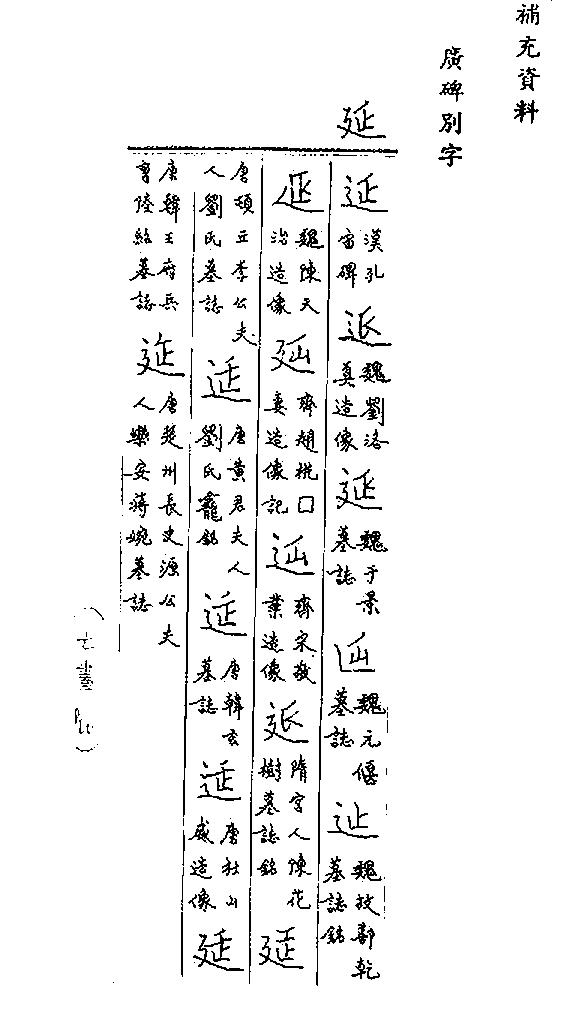 補充資料
廣碑別字
延
延 漢孔宙碑 延 魏劉洛真造像 延 魏于景墓誌 延 魏元偃墓誌 延 魏故鄯乾墓誌銘
延 魏陳天治造像 延 齊趙桃□妻造像記 延 齊宋敬業造像 延 隋宮人陳花樹墓誌銘 延
唐頓丘李公夫人劉氏墓誌 延 唐黃君夫人劉氏龕銘 延 唐韓玄墓誌 延 唐杜山威造像 延
唐韓王府兵曹陸紹墓誌 延 唐楚州長史源公夫人樂安蔣婉墓誌